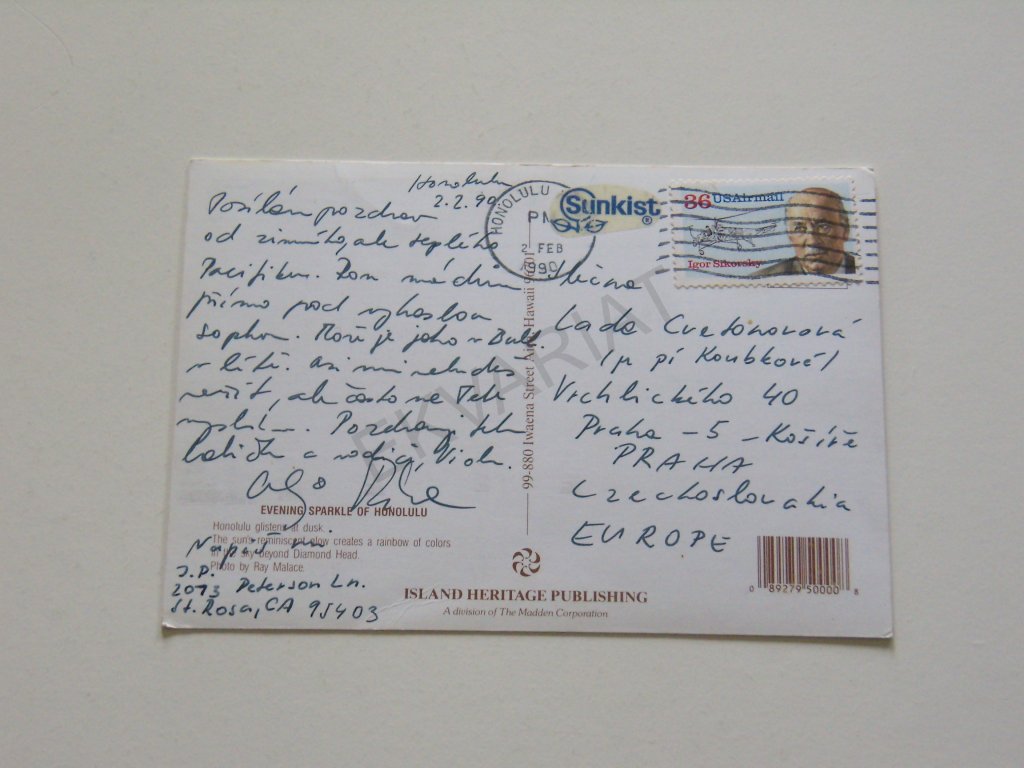 Honolulu
2.2.90
Posílám pozdrav
od zimního, ale teplého
Pacifiku.
přímo pod vyhaslou
sopkou. Moře je jako v Bulh.
v létě. Asi mi nebudeš
věřit, ale často na Tebe
myslím. Pozdravuj
babičku a rodiče,
Napiš mi.
J.P.
2073 Peterson Ln.
St. Rosa, CA 95403
EVENING SPARKLE OF HONOLULU
Honolulu glistens at dusk.
The sun's reminiscent glow creates a rainbow of colors
in the sky beyond Diamond Head.
Photo by Ray Malace.
HONOLULU
PM
2 FEB
1990
Sunkist®
36 USAirmail
Igor Sikorsky
slečna
Lada Cvetanovová
(p. pí Koubková)
Vrchlického 40
Praha - 5 - Košíře
PRAHA
Czechoslovakia
EUROPE
99-880 Iwaena Street Aiea, Hawaii 96701
ISLAND HERITAGE PUBLISHING
A division of The Madden Corporation
0 89279 50000 8
EKVARIAT